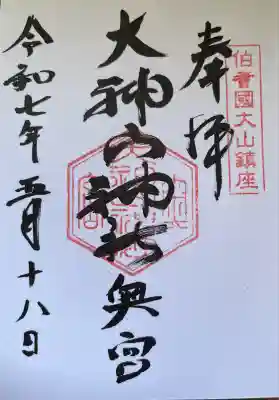 伯耆國大山鎮座
奉拝
大神山神社奥宮
令和七年五月十八日